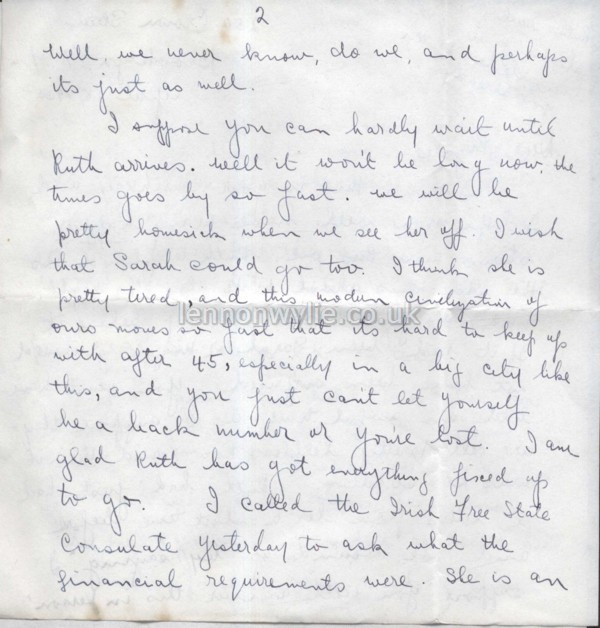 2
Well, we never know, do we, and perhaps
its just as well.
I suppose you can hardly wait until
Ruth arrives. Well it won't be long now, the
times goes by so fast. we will be
pretty homesick when we see her off. I wish
that Sarah could go too. I think she is
pretty tired, and this modern civilization of
ours moves so fast that its hard to keep up
lennonwylie.co.uk
with after 45, especially in a big city like
this, and you just can't let yourself
be a back number or you're lost. I am
glad Ruth has got everything fixed up
to go. I called the Irish Free State
Consulate yesterday to ask what the
financial requirements were. She is an